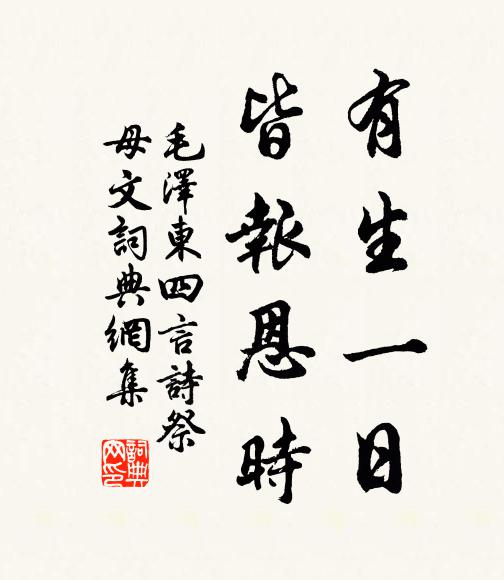 有生一日
皆報恩時
毛澤東四言詩祭
母文詞典網集
詞典
网印